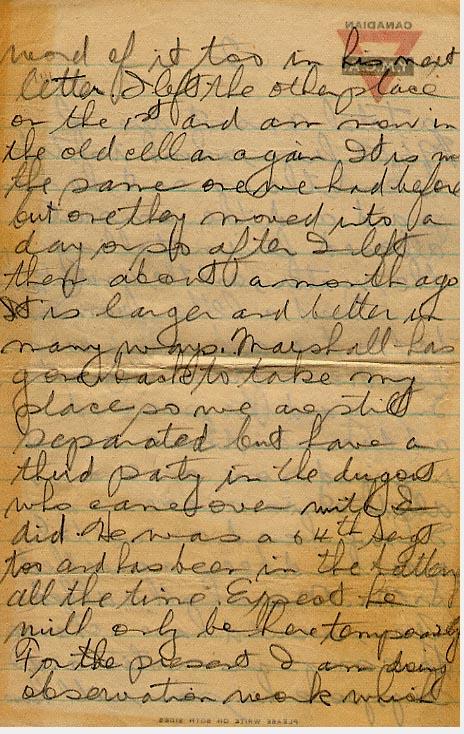 CANADIAN
word of it too in his next
letter. I left the other place
on the 1st and am now in
the old cellar again. It is not
the same one we had before
but one they moved into a
day or so after I left
them about a month ago
It is larger and better in
many ways. Marshall has
gone back to take my
place so we are still
separated but have a
third party in the dugout
who came over with I
did. He was a 64th Sagt
too and has been in the battery
all the time. Expect he
will only be here temporarily
For the present I am doing
observation work which
PLEASE WRITE ON BOTH SIDES